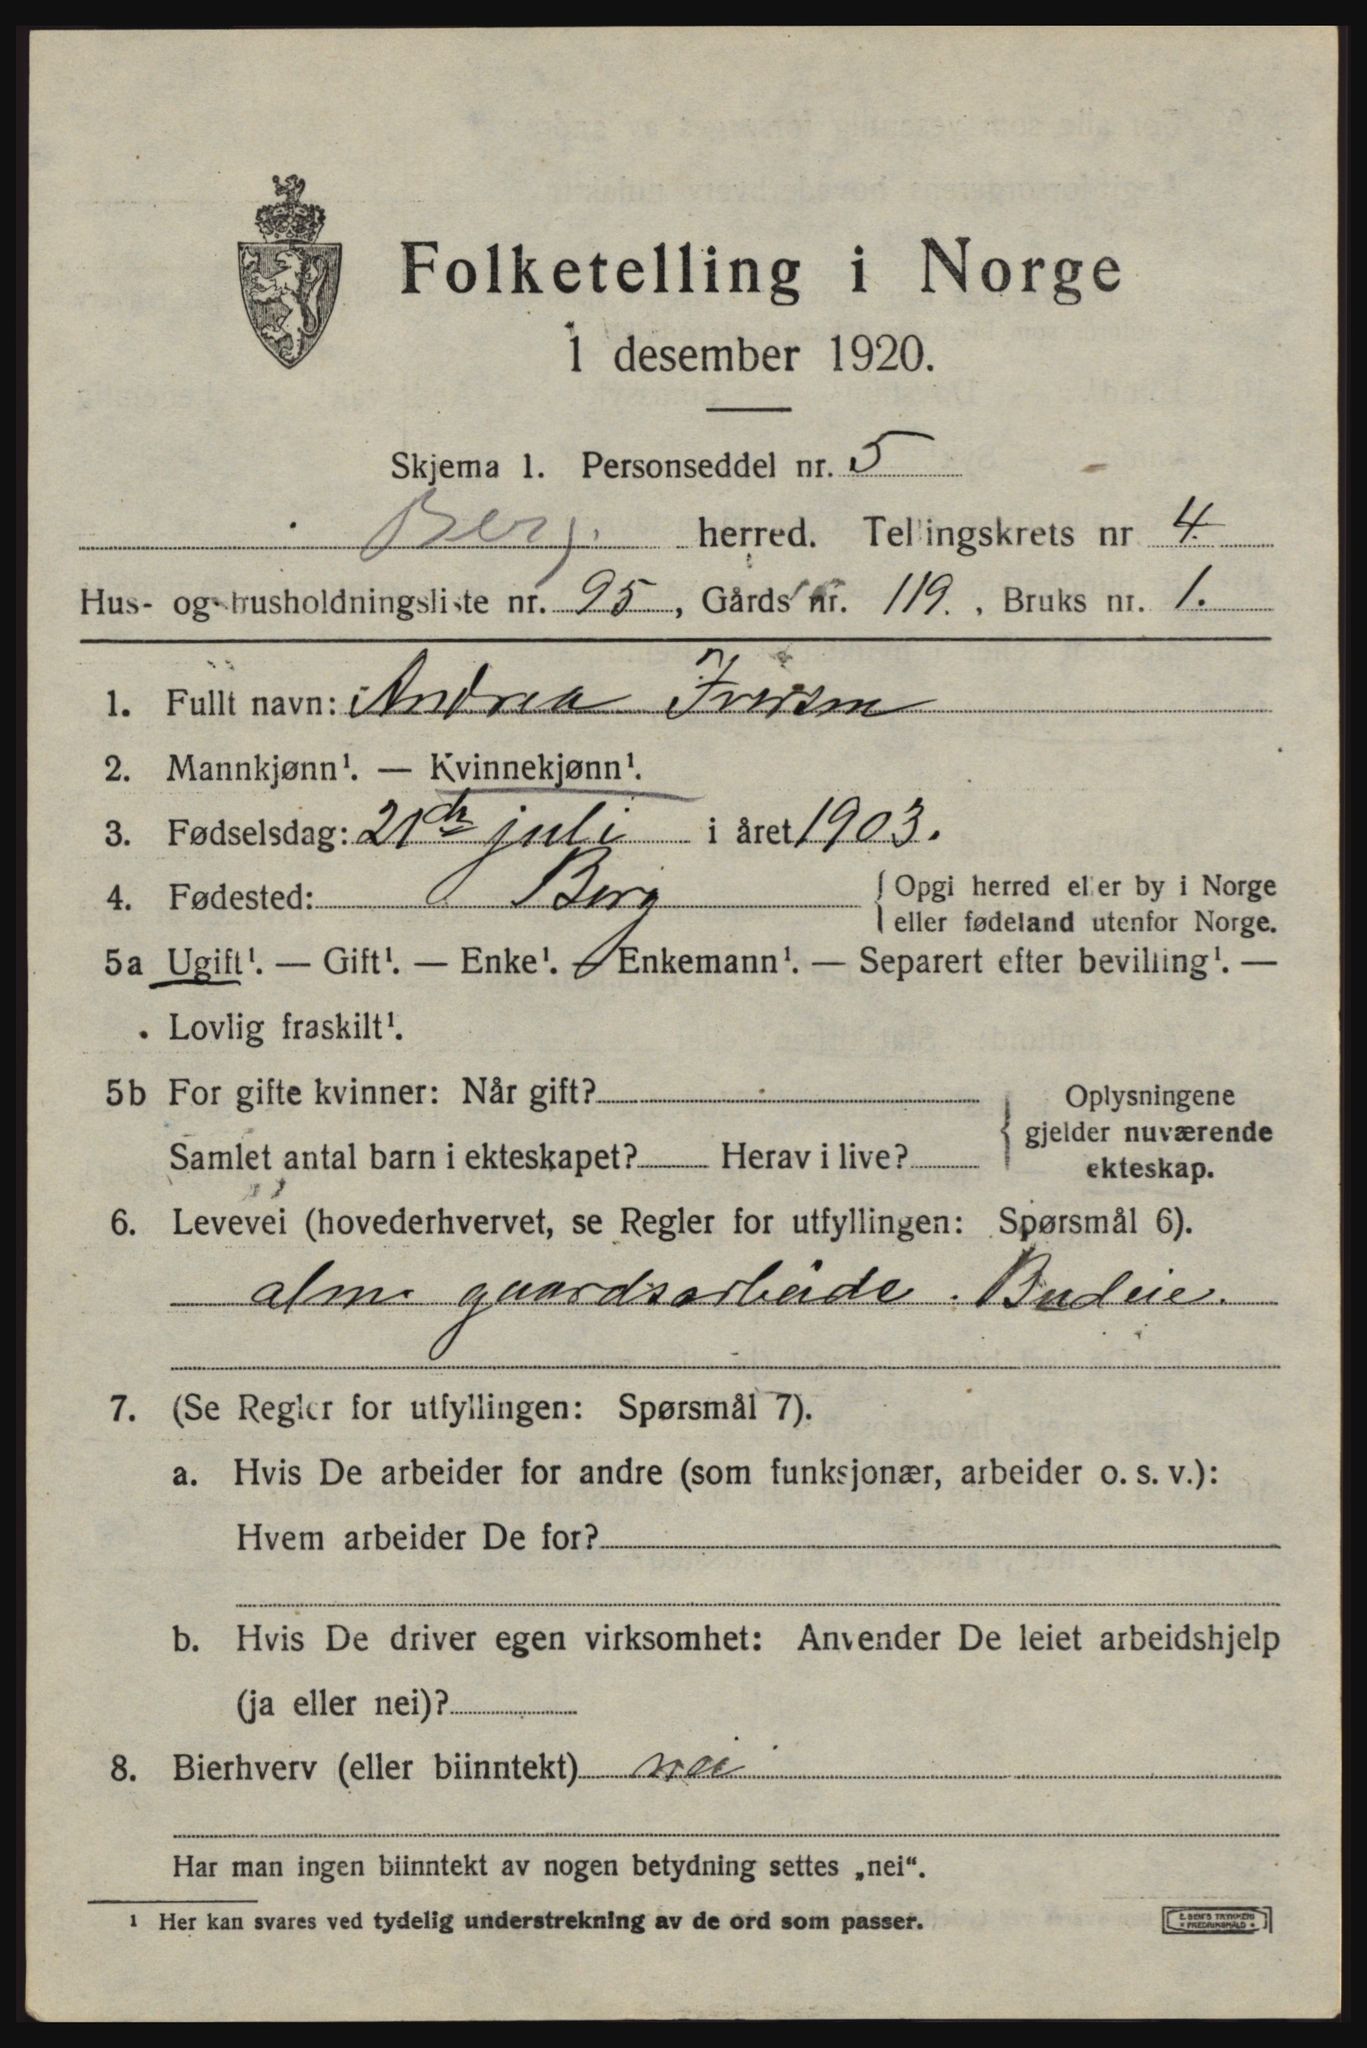 Folketelling i Norge
1 desember 1920.
Skjema 1. Personseddel nr. 5
Berg. herred. Tellingskrets nr 4.
Hus- og husholdningsliste nr. 95, Gårds nr. 119., Bruks nr. 1.
1. Fullt navn: Andrea Iversen
2. Mannkjønn¹. — Kvinnekjønn¹.
3. Fødselsdag: 21de juli i året 1903.
4. Fødested: Berg { Opgi herred eller by i Norge
eller fødeland utenfor Norge.
5a Ugift¹. — Gift¹. — Enke¹. — Enkemann¹. — Separert efter bevilling¹. —
Lovlig fraskilt¹.
5b For gifte kvinner: Når gift?
Samlet antal barn i ekteskapet? Herav i live?
} Oplysningene
gjelder nuværende
ekteskap.
6. Levevei (hovederhvervet, se Regler for utfyllingen: Spørsmål 6).
alm. gaardsarbeide. Budeie.
7. (Se Regler for utfyllingen: Spørsmål 7).
a. Hvis De arbeider for andre (som funksjonær, arbeider o. s. v.):
Hvem arbeider De for?
b. Hvis De driver egen virksomhet: Anvender De leiet arbeidshjelp
(ja eller nei)?
8. Bierhverv (eller biinntekt) nei
Har man ingen biinntekt av nogen betydning settes „nei“.
¹ Her kan svares ved tydelig understrekning av de ord som passer.